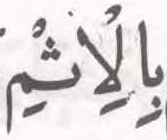 بِالْاِثْمِ